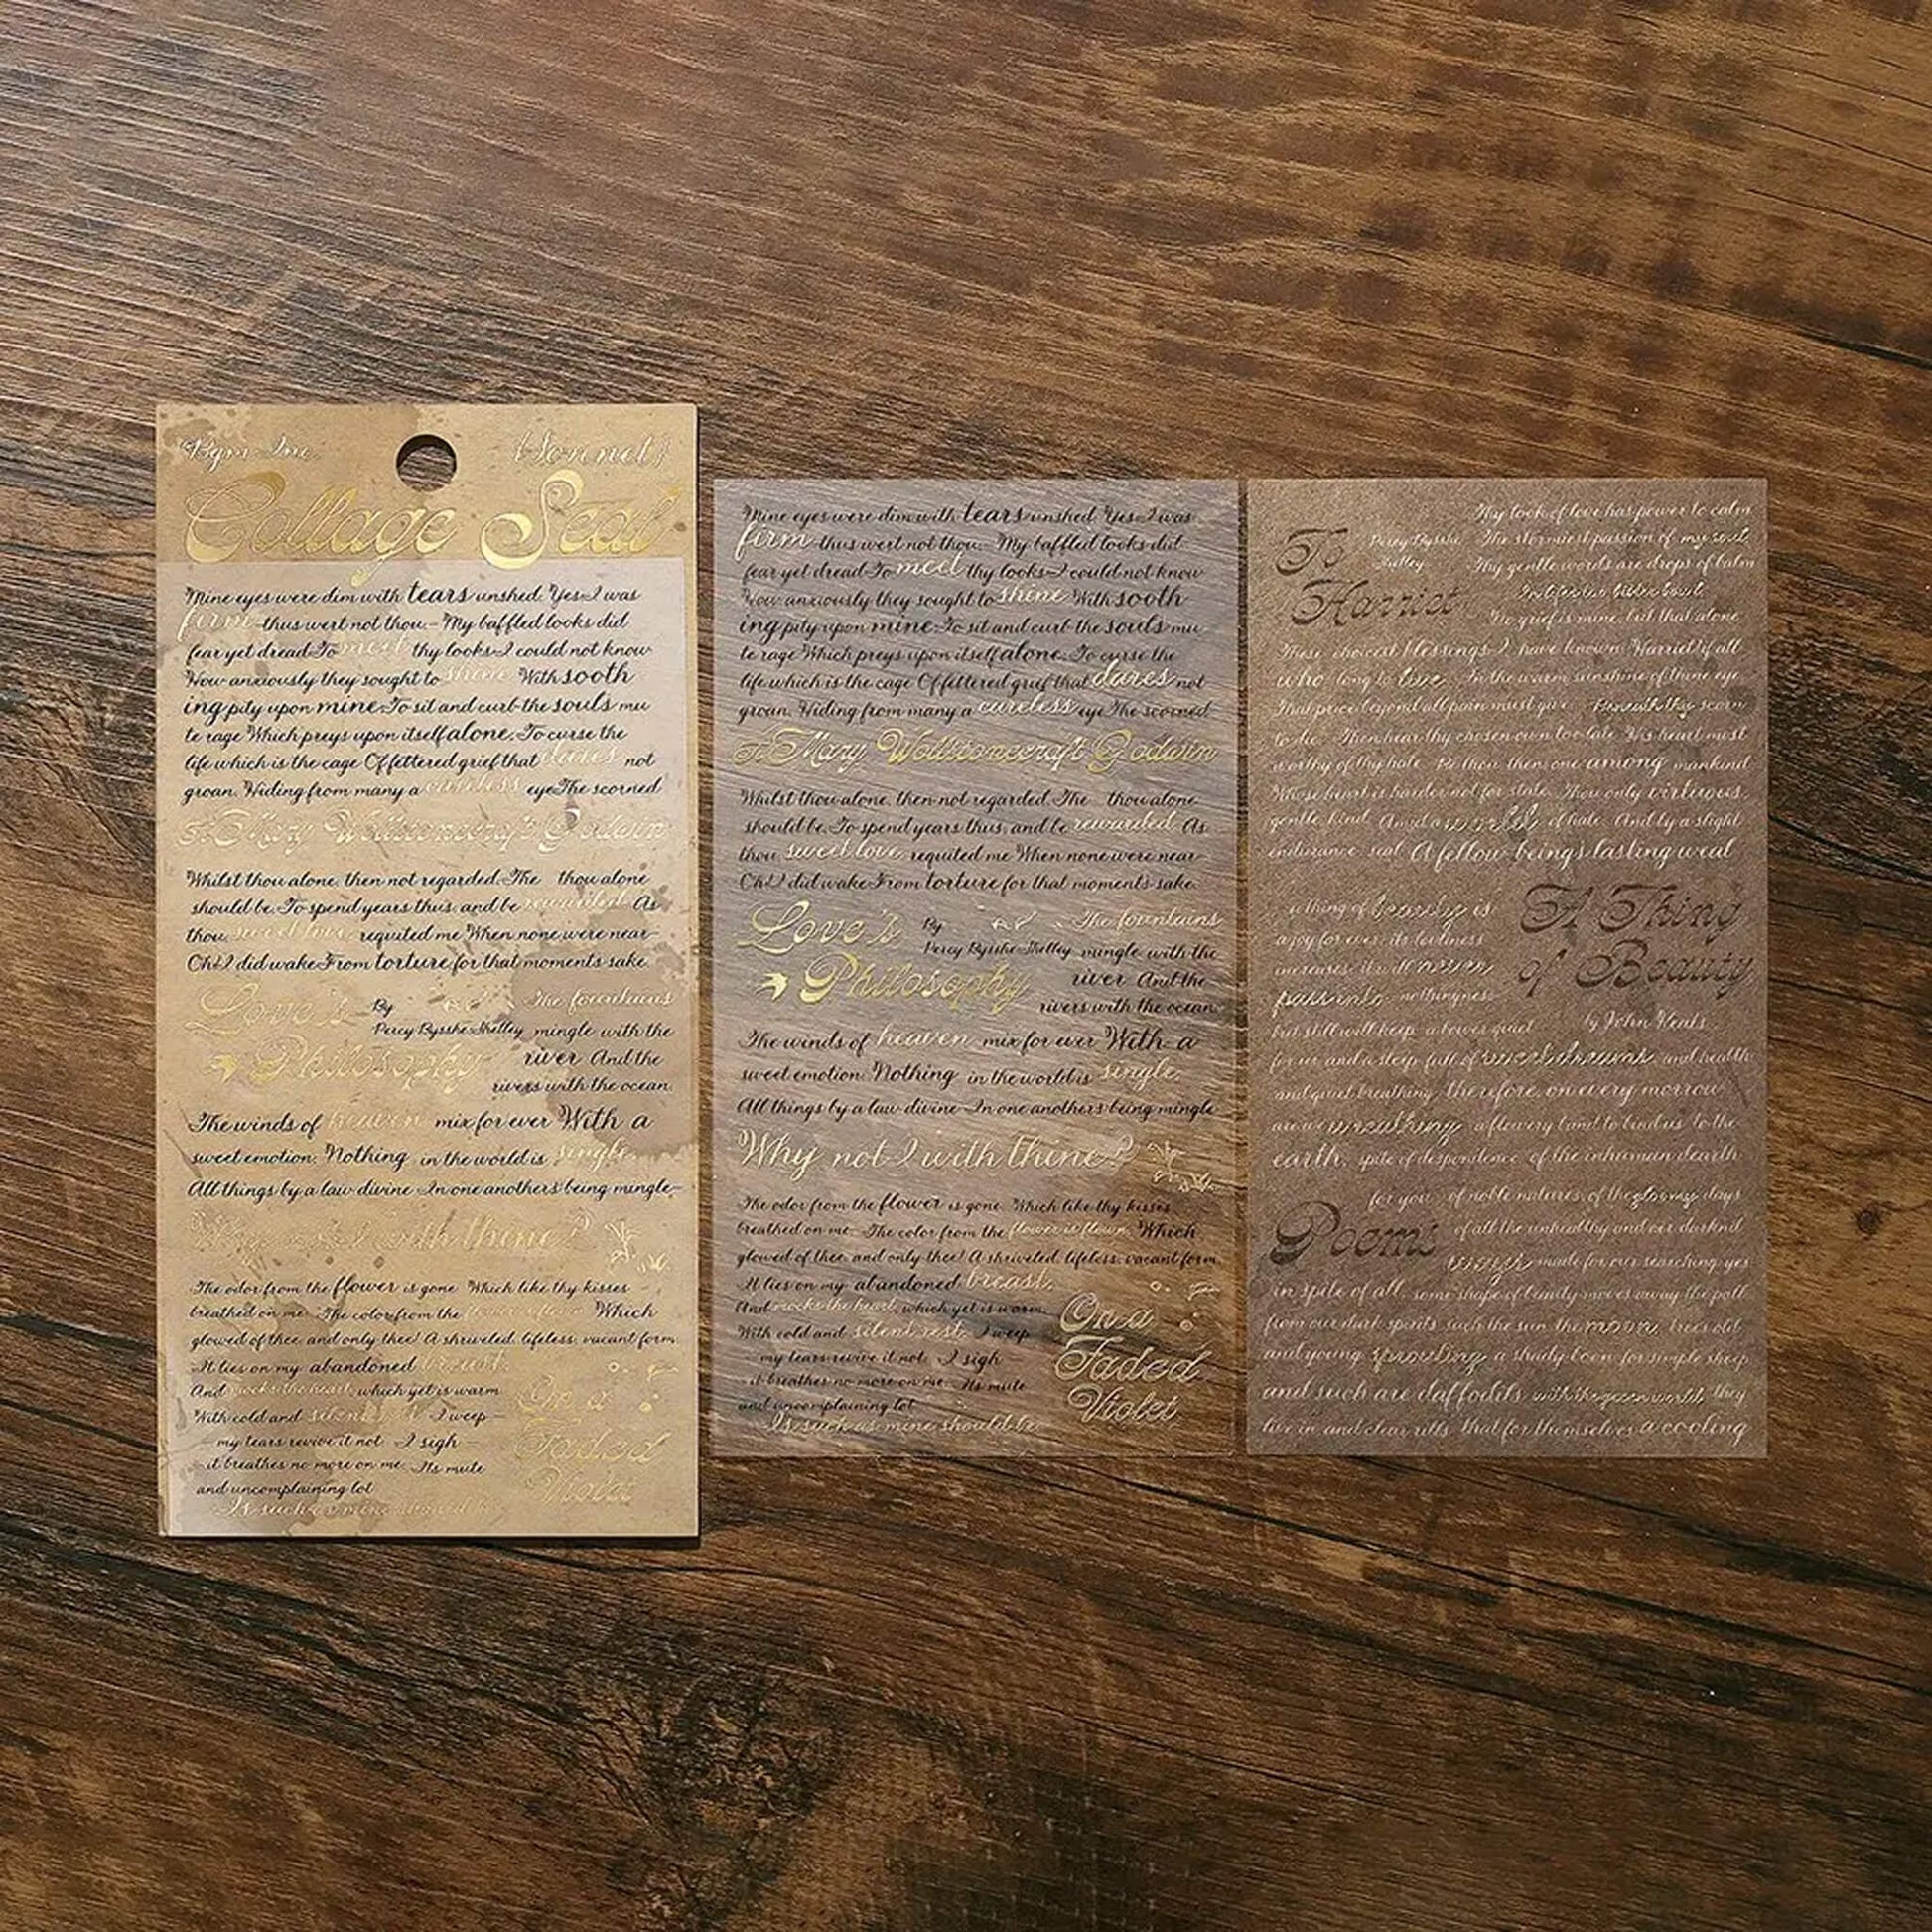 Bgm Inc.
(Sonnet)
Collage Seal
Mine eyes were dim with tears unshed. Yes I was
firm thus wert not thou.- My baffled looks did
fear yet dread To meet thy looks I could not know
How anxiously they sought to shine With sooth
ing pity upon mine. To sit and curb the souls mu
te rage Which preys upon itself alone. To curse the
life which is the cage Of fettered grief that dares not
groan. Hiding from many a careless eye The scorned
To Mary Wollstonecraft Godwin
Whilst thou alone, then not regarded. The thou alone
should be. To spend years thus, and be rewarded. As
thou, sweet love, requited me When none were near
Oh I did wake From torture for that moments sake.
Love's
Philosophy
By
Percy Bysshe Shelley
The fountains
mingle with the
river And the
rivers with the ocean.
The winds of heaven mix for ever With a
sweet emotion. Nothing in the world is single.
All things by a law divine In one anothers being mingle
Why not I with thine?
The odor from the flower is gone Which like thy kisses
breathed on me. The color from the flower is flown Which
glowed of thee, and only thee! A shriveled, lifeless, vacant form.
It lies on my abandoned breast.
And mocks the heart, which yet is warm
With cold and silent rest. I weep
my tears revive it not I sigh
it breathes no more on me. Its mute
and uncomplaining lot
Is such as mine should be
On a
Faded
Violet
Mine eyes were dim with tears unshed. Yes I was
firm thus wert not thou.- My baffled looks did
fear yet dread To meet thy looks I could not know
How anxiously they sought to shine With sooth
ing pity upon mine. To sit and curb the souls mu
te rage Which preys upon itself alone. To curse the
life which is the cage Of fettered grief that dares not
groan. Hiding from many a careless eye The scorned
To Mary Wollstonecraft Godwin
Whilst thou alone, then not regarded. The thou alone
should be. To spend years thus, and be rewarded. As
thou, sweet love, requited me When none were near
Oh I did wake From torture for that moments sake.
Love's
Philosophy
By
Percy Bysshe Shelley
The fountains
mingle with the
river And the
rivers with the ocean.
The winds of heaven mix for ever With a
sweet emotion. Nothing in the world is single.
All things by a law divine In one anothers being mingle
Why not I with thine?
The odor from the flower is gone Which like thy kisses
breathed on me. The color from the flower is flown Which
glowed of thee, and only thee! A shriveled, lifeless, vacant form.
It lies on my abandoned breast.
And mocks the heart, which yet is warm
With cold and silent rest. I weep
my tears revive it not I sigh
it breathes no more on me. Its mute
and uncomplaining lot
Is such as mine should be
On a
Faded
Violet
To
Harriet
Percy Bysshe
Shelley
Thy look of love has power to calm
The stormiest passion of my soul
Thy gentle words are drops of balm
No grief is mine, but that alone
These choicest blessings I have known. Harriet if all
who long to live In the warm sunshine of thine eye
That price beyond all pain must give Beneath thy scorn
to die Then hear thy chosen own too late His heart most
worthy of thy hate. Be thou then one among mankind
Whose heart is harder not for state. Thou only virtuous,
gentle kind Amid a world of hate. And by a slight
endurance seal A fellow being's lasting weal
a thing of beauty is
a joy for ever: its loveliness
increases: it will never
pass into nothingness
but still will keep a bower quiet
A Thing
of Beauty
by John Keats
for us and a sleep full of sweet dreams and health
and quiet breathing therefore, on every morrow
are we wreathing a flowery band to bind us to the
earth, spite of despondence of the inhuman dearth
Poems
of noble natures, of the gloomy days
of all the unhealthy and oer darkned
ways made for our searching: yes
in spite of all, some shape of beauty moves away the pall
from our dark spirits. such the sun the moon, trees old
and young sprouting a shady boon for simple sheep
and such are daffodils with the green world they
live in and clear rills that for themselves a cooling